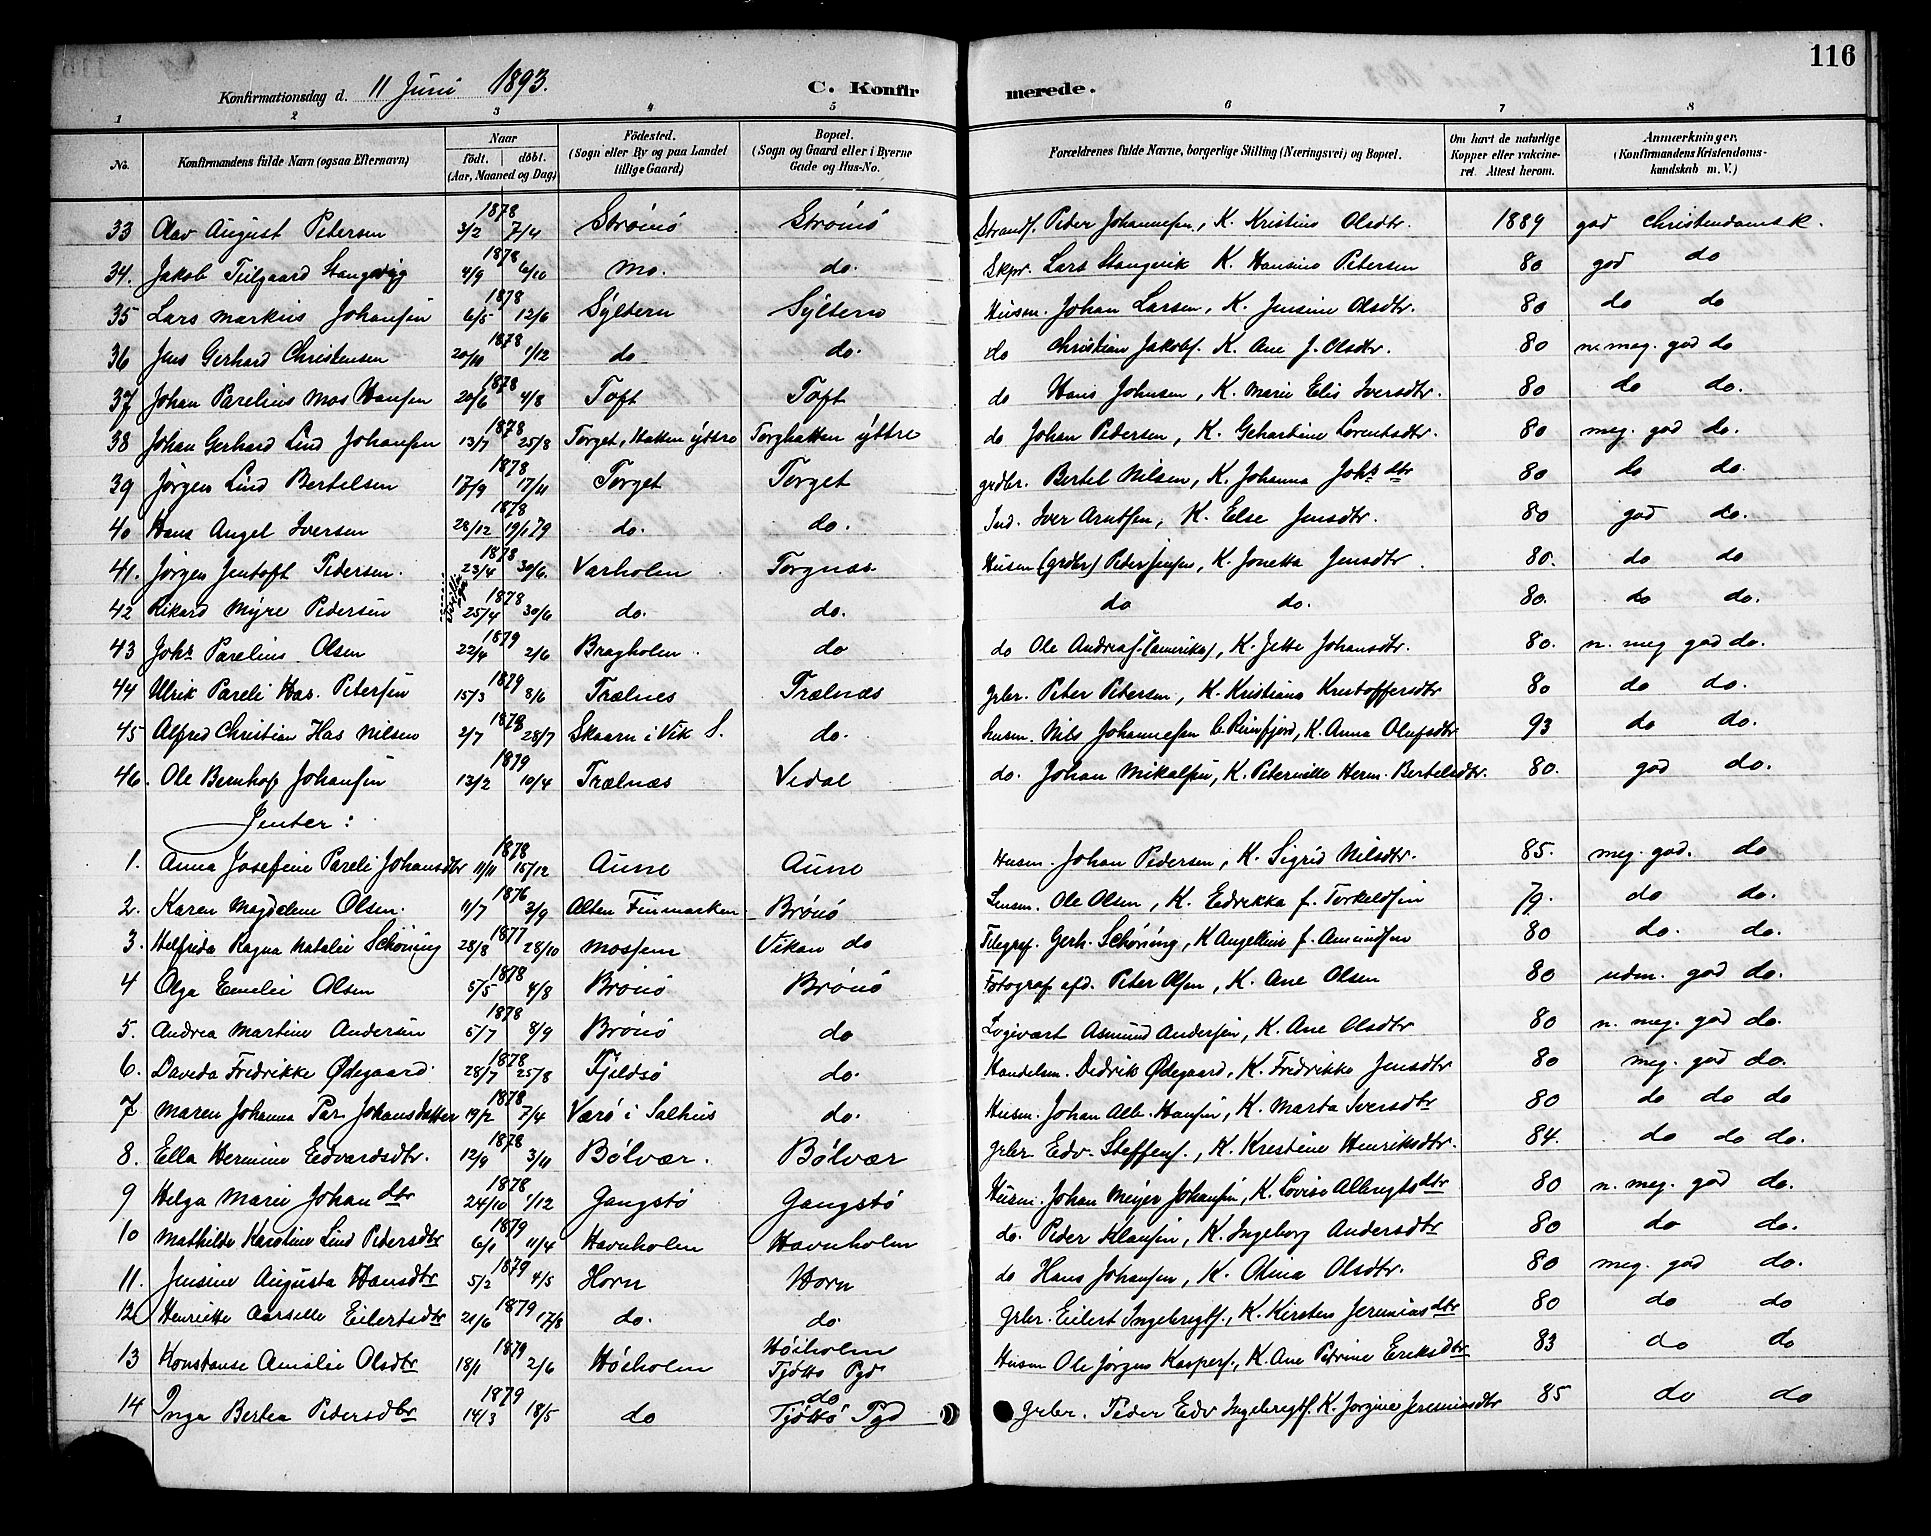 116
Konfirmationsdag d. 11 Juni 1893. C. Konfirmerede.
1 2 3 4 5 6 7 8
No. Konfirmandens fulde Navn (ogsaa Efternavn) Naar födt. döbt. (Aar, Maaned og Dag) Födested. (Sogn eller By og paa Landet tillige Gaard) Bopæl. (Sogn og Gaard eller i Byerne Gade og Hus-No. Forældrenes fulde Navne, borgerlige Stilling (Næringsvei) og Bopæl. Om havt de naturlige Kopper eller vakcineret. Attest herom. Anmærkninger. (Konfirmandens Kristendomskundskab m. V.)
33 Olav August Petersen 1878 3/2 7/4 Strömö Strömö Strandf. Peder Johannesen, K. Kristine Olsdtr. 1889 god Christendomsk.
34. Jakob Teilgaard Stangvig 1878 4/9 6/10 Mo. do. Skpr. Lars Stangvik K. Hansine Petersen 80 god do
35 Lars Markus Johansen 1878 6/5 12/6 Sÿltern Sÿltern Husm. Johan Larsen, K. Jensine Olsdtr. 80 do do
36 Jens Gerhard Christensen 1878 20/10 1/12 do do. do Christian Jakobs. K. Ane J. Olsdtr. 80 n. meg. god do
37 Johan Parelius Mos Hansen 1878 20/6 4/8 Toft Toft do Hans Johnsen, K. Marie Elis Iversdtr. 80 do do.
38 Johan Gerhard Lind Johansen 1878 13/7 25/8 Torget, Hatten ÿttre Torghatten ÿttre do Johan Pedersen, K. Gehartine Lorentsdtr. 80 meg. god do.
39 Jörgen Lind Bertelsen 1878 17/9 17/11 Torget Torget grdbr. Bertel Nilsen, K. Johanna Johs dtr 80 do do.
40 Hans Angel Iversen 1878 28/12 19/1 79 do. do. Ind. Iver Arntsen, K. Else Jensdtr. 80 god do.
41. Jörgen Jentoft Pedersen. 1878 23/4 30/6. Varholm Torgnæs Husm (grdbr) Peter Jensen, K. Jonetta Jensdtr. 80. do do
42 Rikard Mÿre Pedersen 1878 25/4 30/6 do. do. do do. 80. do do.
43 Johs Parelius Olsen 1879 22/4 2/6 Bragholm. do do Ole Andreas. (Amerika), K. Jette Johansdtr. 80. n. meg god do.
44 Ulrik Pareli Has. Petersen 1879 15/3 8/6 Trælnes Trælnæs grbr. Peter Petersen, K. Kristiana Kristoffersdtr 80 do do.
45 Alfred Christian Has Nilsen 1878 2/7 28/7 Skaarn i Vik S. do. Husm. Nils Johannesen, K. Anna Olufsdtr 93 do do.
46. Ole Bernhof Johansen 1879 13/2 10/4 Trælnæs Vedal do. Johan Mikalsen, K. Peternille Herm. Bertelsdtr. 80. god do.
Jenter:
1. Anna Josefine Pareli Johansdtr 1878 11/11 15/12 Aune Aune Husm. Johan Pedersen, K. Sigrid Nilsdtr. 85. meg. god. do
2. Karen Magdalene Olsen. 1876 11/7 3/9 Alten Finmarken Brönö Lensm. Ole Olsen, K. Fredrikka f. Torkeldsen 79. do do.
3. Helfrida Ragna Natalie Schöning 1877 28/8 28/10 Mosjöen Vikan do Telegraf. Gerh. Schöning, K Angelline f. Amundsen 80 do. do.
4 Olga Emelie Olsen 1878 5/5 4/8 Brönö Brönö Fotograf afd. Peter Olsen, K. Ane Olsen 80 udm. god do.
5. Andrea Martine Andersen 1878 5/7 8/9 Brönö do Logivært Asmund Andersen, K. Ane Olsdtr 80 n. meg. god do.
6. Daveda Fredrikke Ødegaard. 1878 28/7 25/8 Fjeldsö do. Handelsm. Dedrik Ødegaard, K. Fredrikke Jensdtr 80 meg. god do.
7 Maren Johanna Par. Johansdatter 1878 19/2 7/4 Værö i Salhus do. Husm. Johan Alb. Hansen, K. Marta Iversdtr 80 do do do
8. Ella Hermine Edvardsdtr. 1878 12/9 3/11 Bölvær. Bölvær grbr Edv. Steffens., K. Krestine Henriksdtr. 84. do do do.
9 Helga Marie Johan dtr 1878 24/10 1/12 Gangstö Gangstö Husm. Johan Meÿer Johansen, K. Lovise Albregts dtr 80 n. meg. god do.
10 Mathilde Karoline Lind Pedersdtr 1879 6/1 11/4 Havnholm Havnholm do. Peder Klausen, K. Ingeborg Andersdtr 80 do do.
11. Jensine Augusta Hansdtr 1879 5/2 4/5 Horn Horn do Hans Johansen, K. Olina Olsdtr. 80 meg. god do.
12 Henriette Aarselle Eilertsdtr 1879 21/6 17/8 do. do. grbr. Eilert Ingebregts., K. Kirsten Jeremias dtr 80 do do
13 Konstanse Amalie Olsdtr 1879 18/1 2/6 Höiholm Höiholm Tjötto Pgd Husm Ole Jörgen Kaspers., K. Ane Petrine Eriksdtr 83 do do
14 Inga Bertea Pedersdtr 1879 14/3 18/5 do do Tjöttö Pgd grbr. Peder Edv Ingebregts. K. Jorgine Jeremiasdtr 85 do do